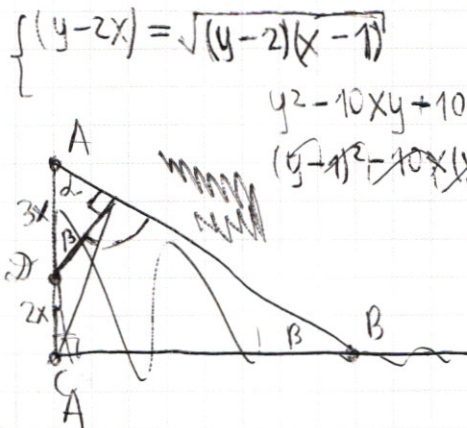 { (y-2x) = √(y-2)(x-1)
y² - 10xy + 10
(y-1)² - 10x(
A
α
3x
β
D
2x
β
B
C
A